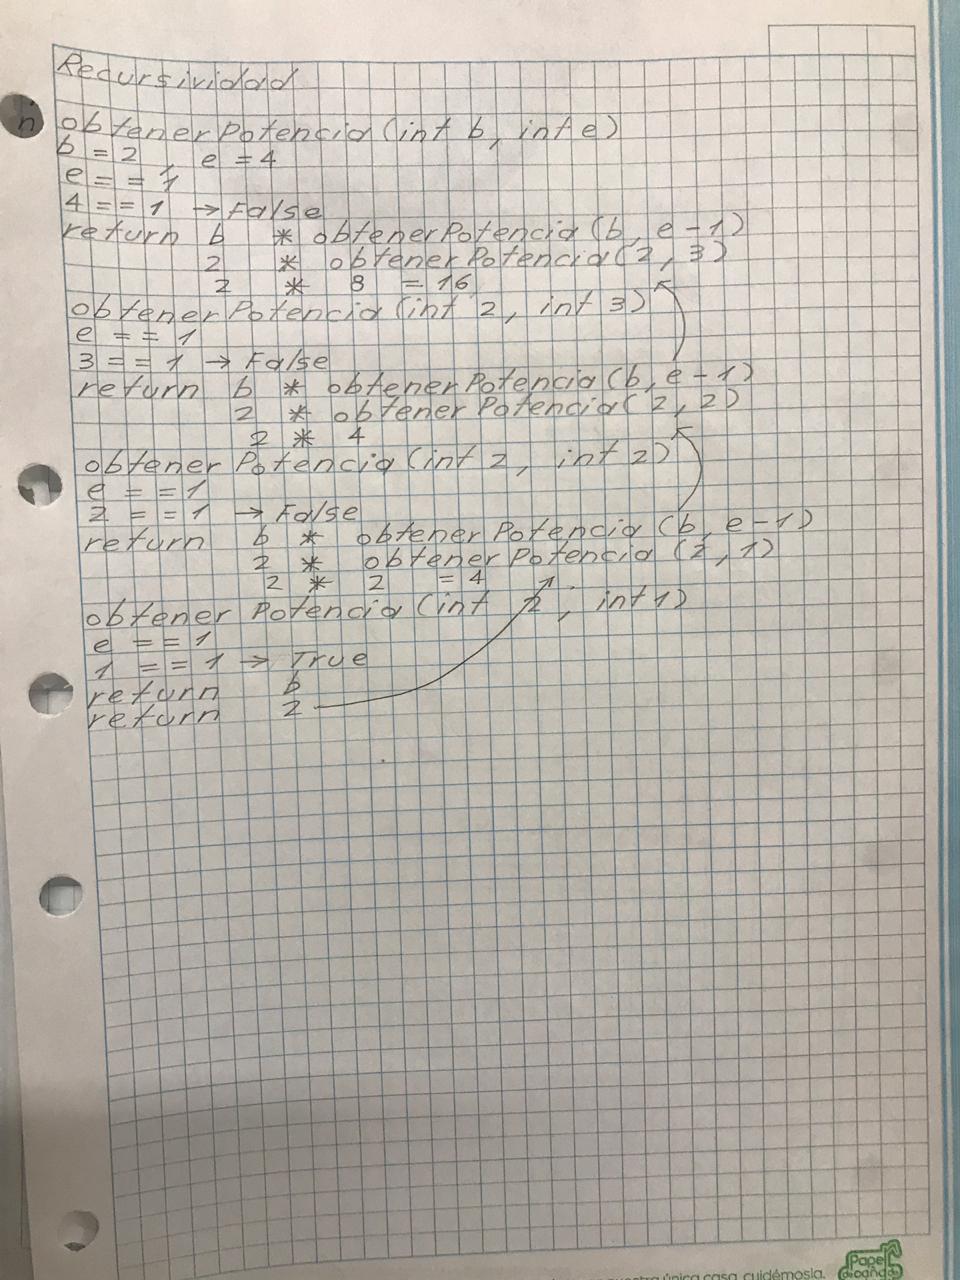 Recursividad
obtenerPotencia(int b, int e)
b = 2, e = 4
e == 1
4 == 1 → False
return b * obtenerPotencia(b, e-1)
2 * obtenerPotencia(2, 3)
2 * 8 = 16
obtenerPotencia(int 2, int 3)
e == 1
3 == 1 → False
return b * obtenerPotencia(b, e-1)
2 * obtenerPotencia(2, 2)
2 * 4
obtenerPotencia(int 2, int 2)
e == 1
2 == 1 → False
return b * obtenerPotencia(b, e-1)
2 * obtenerPotencia(2, 1)
2 * 2 = 4
obtenerPotencia(int 2, int 1)
e == 1
1 == 1 → True
return b
return 2
única casa, cuidémosla.
Papel